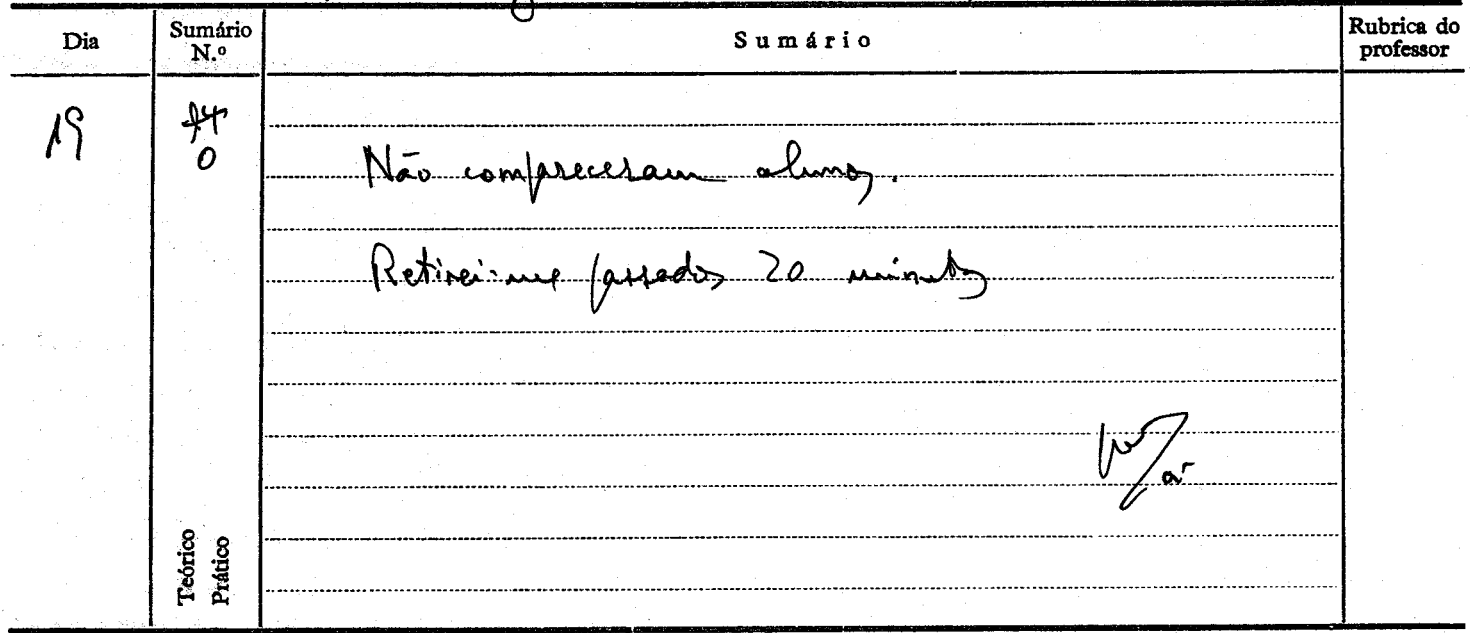 Dia
Sumário
N.º
Sumário
Rubrica do
professor
19
14
0
Não compareceram alunos.
Retirei-me passados 20 minutos
Teórico
Prático